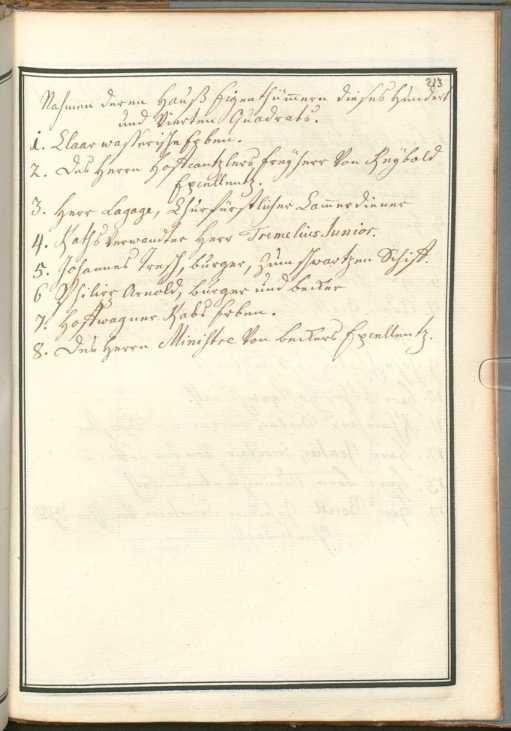 213
Nahmen deren Hauß Eigenthümmern dieses Hundert
und Vierten Quadrats.
1. Claar wasserische Erben.
2. Des Herrn Hoffcantzlers Freyherr Von Reybold
Excellentz.
3. Herr Lagage, Churfürstlicher Cammerdiener
4. Raths Verwandter Herr Tremelius Junior.
5. Johannes Tresch, burger, Zum schwartzen Schiff.
6 Philips Arnold, burger und becker
7. Hoffwagner Rabs Erben.
8. Des Herrn Ministre Von beckers Excellentz.